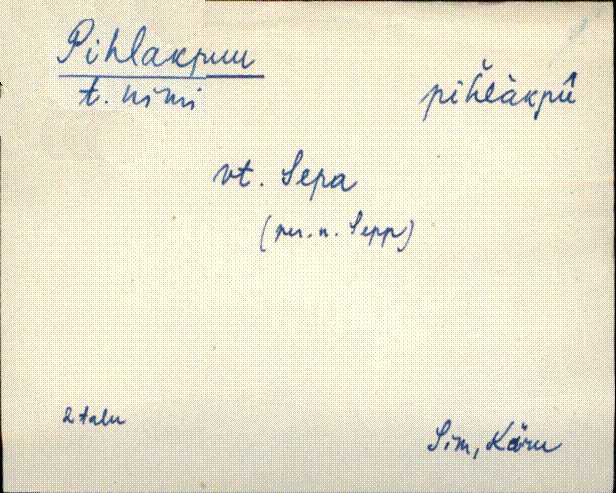 Pihlakpuu
t. nimi
pihlàkpū̂
vt. Sepa
(per. n. Sepp)
2 talu
Sim, Käru